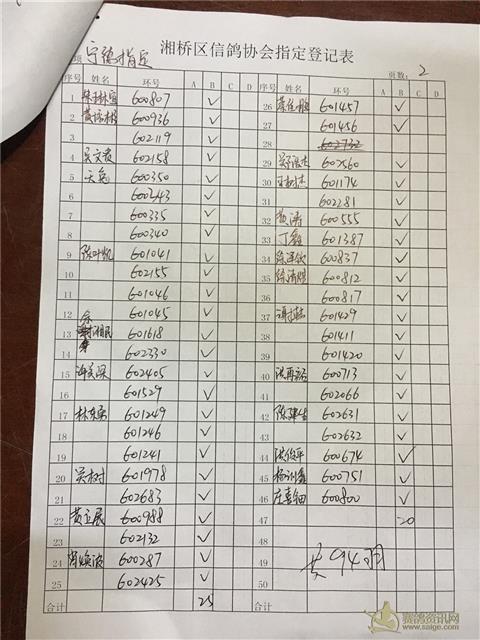 湘桥区信鸽协会指定登记表
项 宁德指定 页数: 2
序号 姓名 环号 A B C D
1 600807 √
2 600936 √
3 602119 √
4 吴文贵 602158 √
5 天兔 600350 √
6 600343 √
7 600335 √
8 600340 √
9 陈叶凯 601041 √
10 602155 √
11 601046 √
12 601045 √
13 601618 √
14 602330 √
15 602405 √
16 601529 √
17 601249 √
18 601246 √
19 601241 √
20 吴树 601978 √
21 602683 √
22 黄立展 600988 √
23 602132 √
24 600287 √
25 602425 √
合计 25
序号 姓名 环号 A B C D
26 601457 √
27 601456 √
28 602732
29 602560 √
30 601174 √
31 602281 √
32 黄涛 600555 √
33 丁鑫 601387 √
34 600837 √
35 600812 √
36 600817 √
37 601429 √
38 601411 √
39 601420 √
40 洪再裕 600713 √
41 602066 √
42 602631 √
43 602632 √
44 600674 √
45 600751 √
46 庄喜钿 600800 √
47 20
48
49 共94羽
50
合计
赛鸽资讯网
www.saige.com